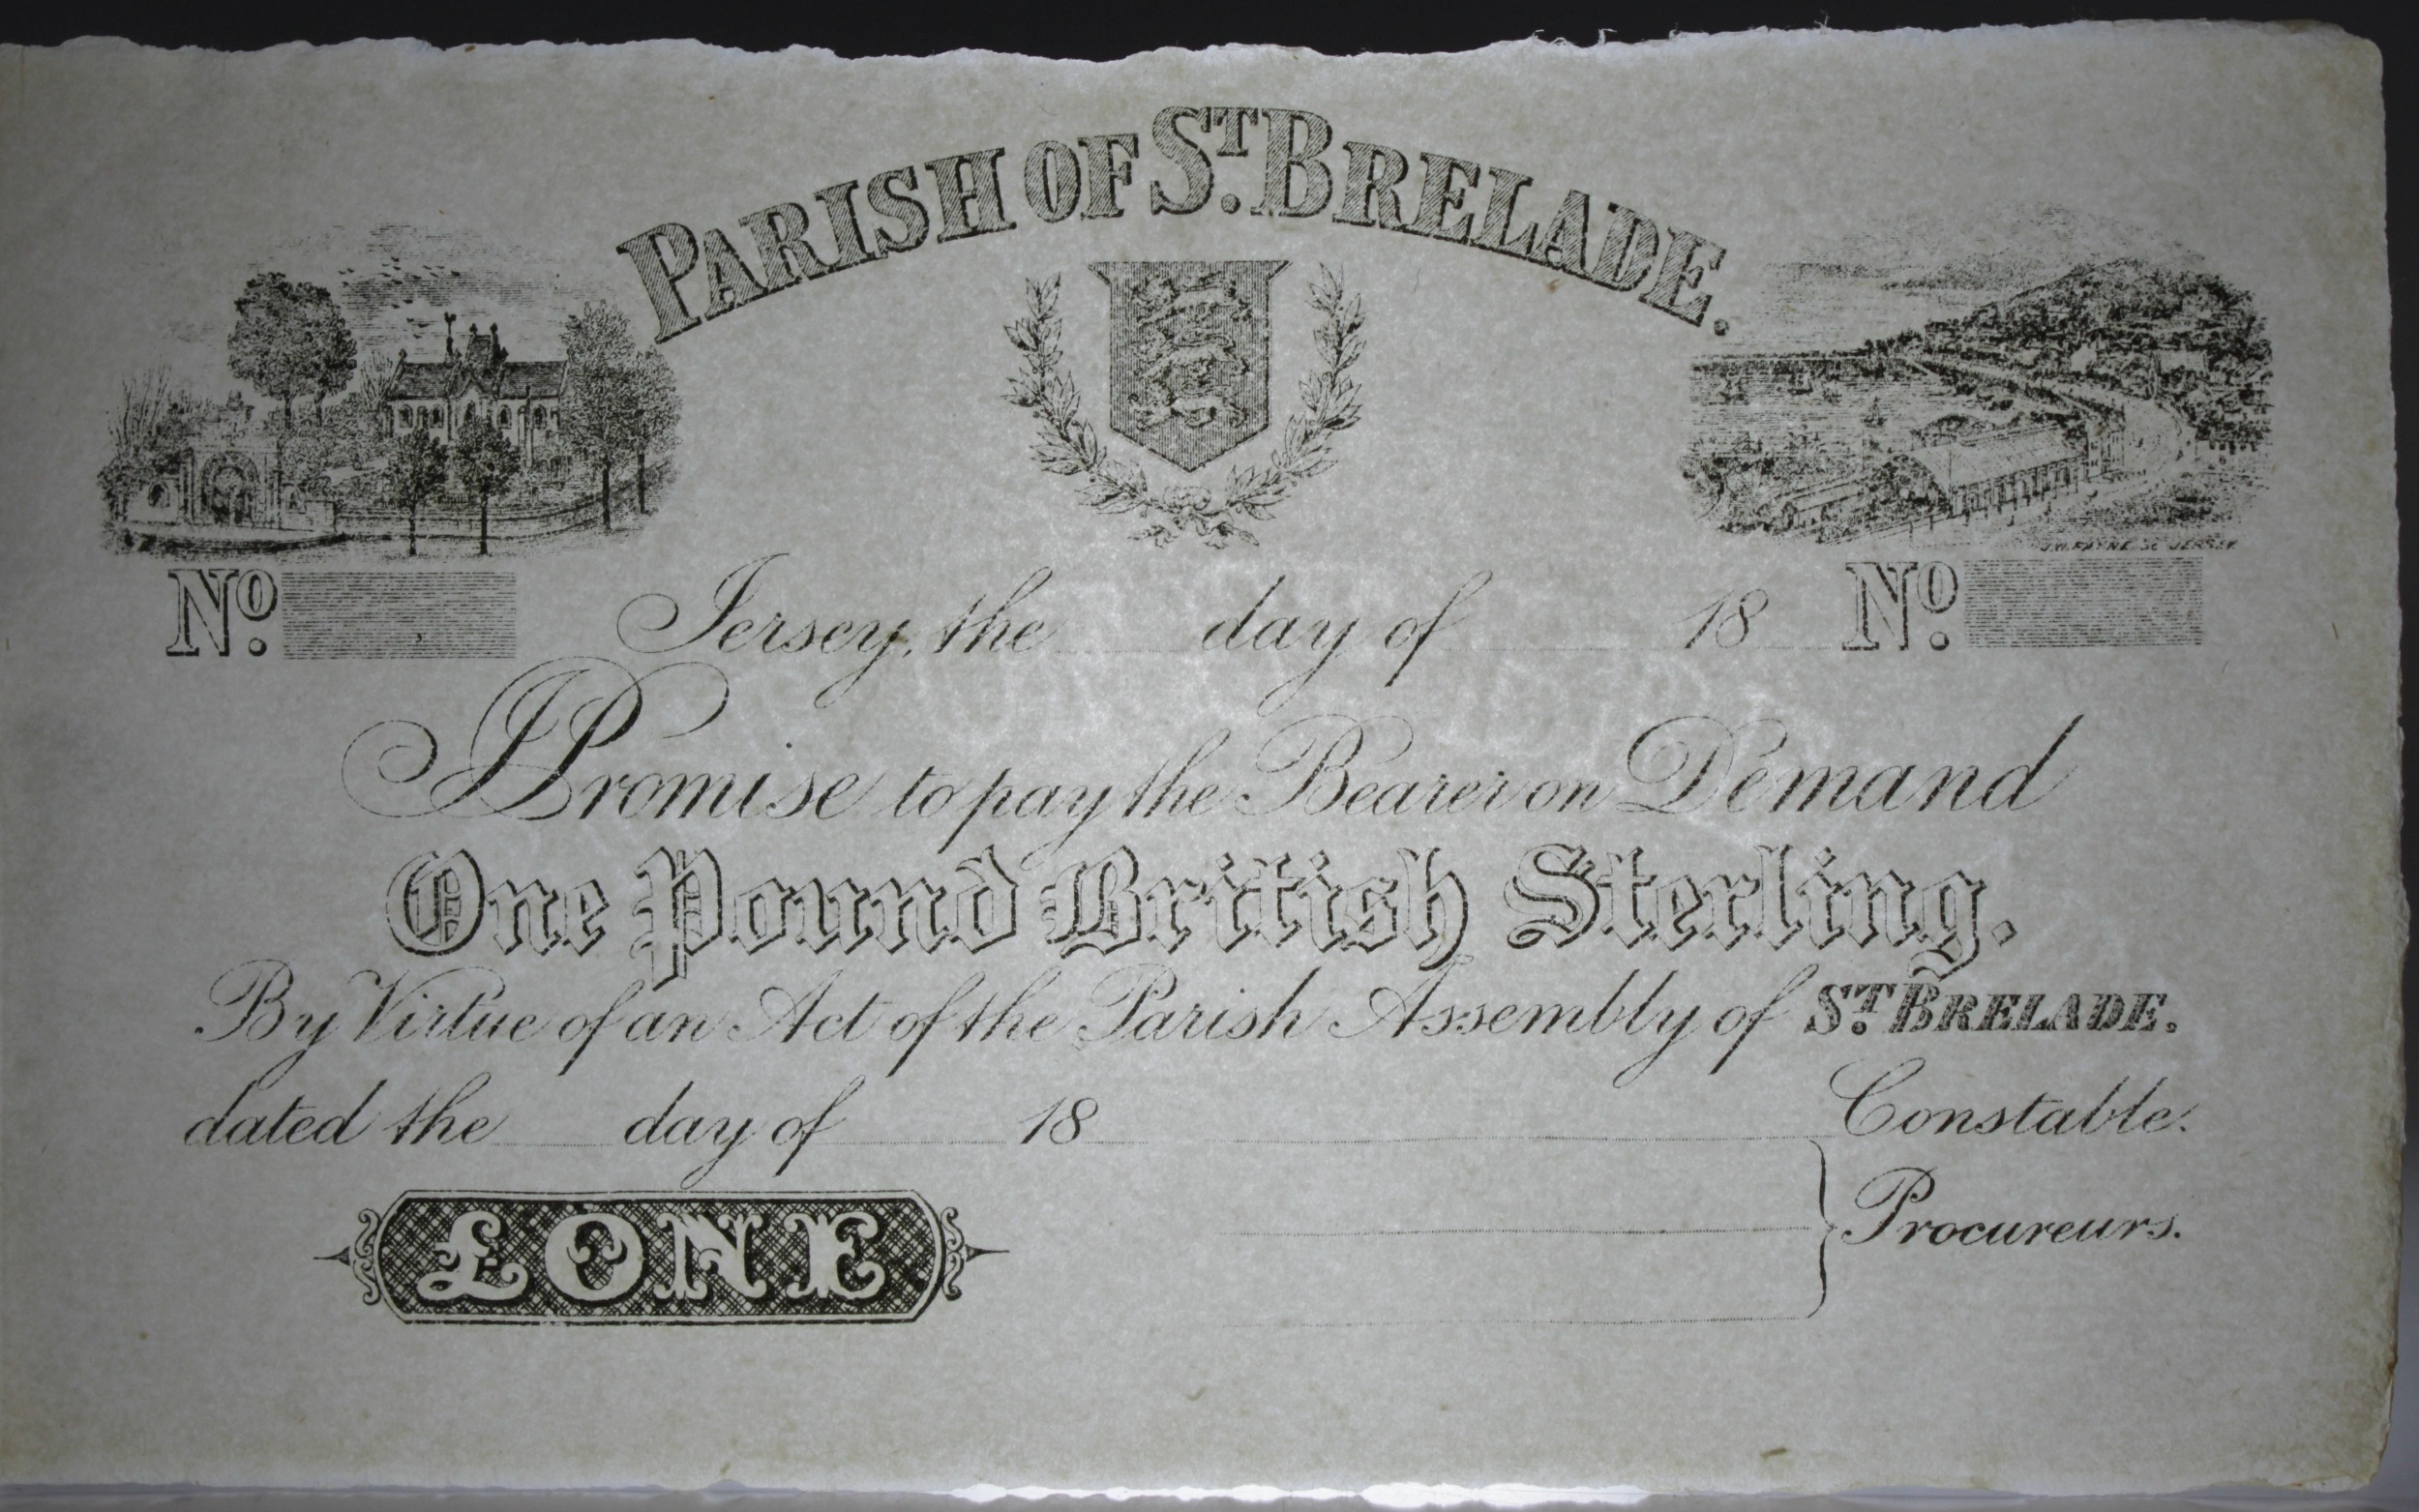 PARISH OF ST. BRELADE.
J.W. PAYNE Sc JERSEY
No. Jersey, the day of 18 No.
I Promise to pay the Bearer on Demand
One Pound British Sterling.
By Virtue of an Act of the Parish Assembly of ST. BRELADE.
dated the day of 18 Constable.
Procureurs.
£ ONE